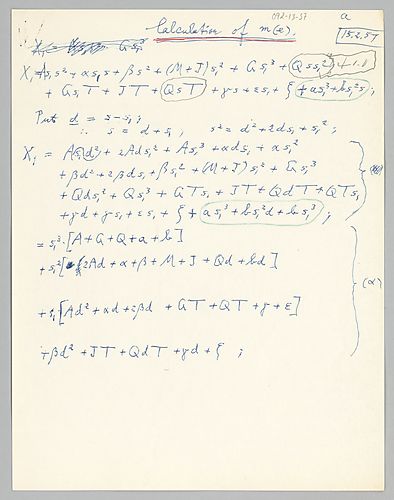 092-13-57
a
Calculation of m(ε).
15.2.57
X₁ = As₁s² + αs₁s + βs² + (M+J)s₁² + Gs₁³ + Qss₁² + 1.1
+ Gs₁T + JT + QsT + γs + εs₁ + ξ + as₁³ + bs₁²s ;
Put d = s - s₁ ;
∴ s = d + s₁ , s² = d² + 2ds₁ + s₁² ;
X₁ = As₁d² + 2Ads₁² + As₁³ + αds₁ + αs₁²
+ βd² + 2βds₁ + βs₁² + (M+J)s₁² + Gs₁³
+ Qds₁² + Qs₁³ + GTs₁ + JT + QdT + QTs₁
+ γd + γs₁ + εs₁ + ξ + as₁³ + bs₁²d + bs₁³ ;
= s₁³ [A + G + Q + a + b]
+ s₁² [2Ad + α + β + M + J + Qd + bd]
(α)
+ s₁ [Ad² + αd + 2βd + GT + QT + γ + ε]
+ βd² + JT + QdT + γd + ξ ;